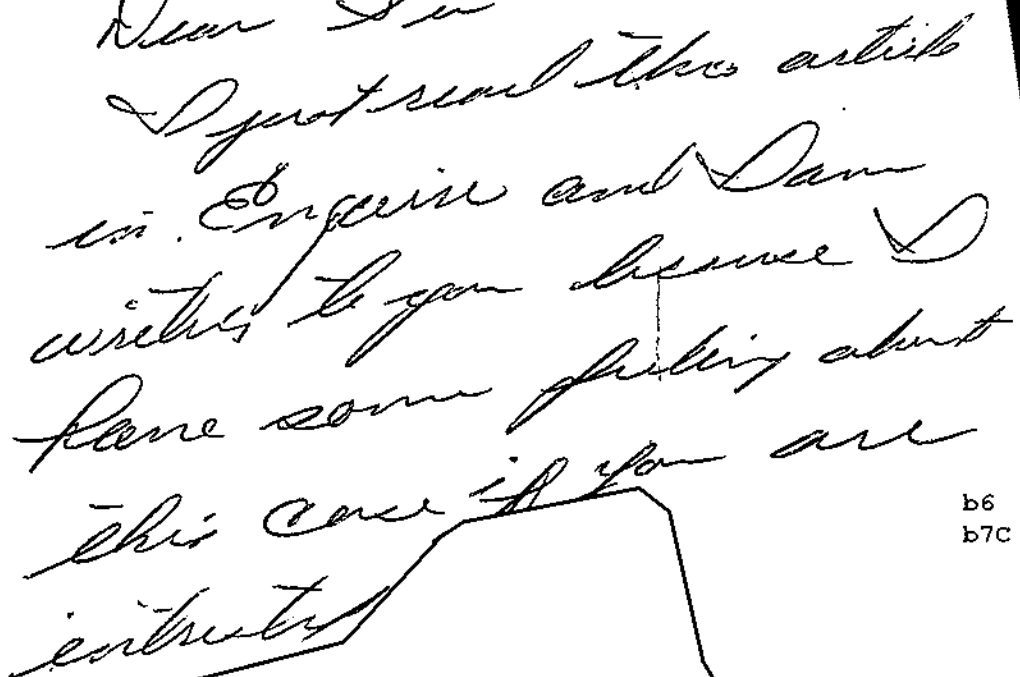 Dear Sir
I just read the article
in Enquire and I am
writing to you because I
have some feeling about
this case if you are
b6
b7C
intrested